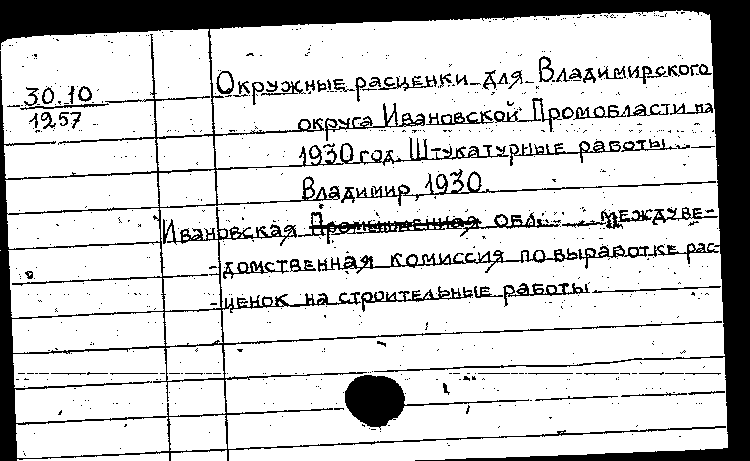 30.10
1257
Окружные расценки для Владимирского
округа Ивановской Промобласти на
1930 год. Штукатурные работы...
Владимир, 1930.
Ивановская Промышленная обл. междуве-
-домственная комиссия по выработке рас-
-ценок на строительные работы.